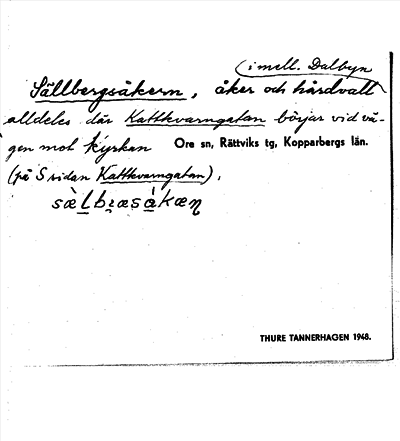 (i mell. Dalbyn
Sällbergsåkern, åker och hårdvall
alldeles där Kattkvarngatan börjar vid vä-
gen mot kyrkan Ore sn, Rättviks tg, Kopparbergs län.
(på S sidan Kattkvarngatan).
THURE TANNERHAGEN 1948.